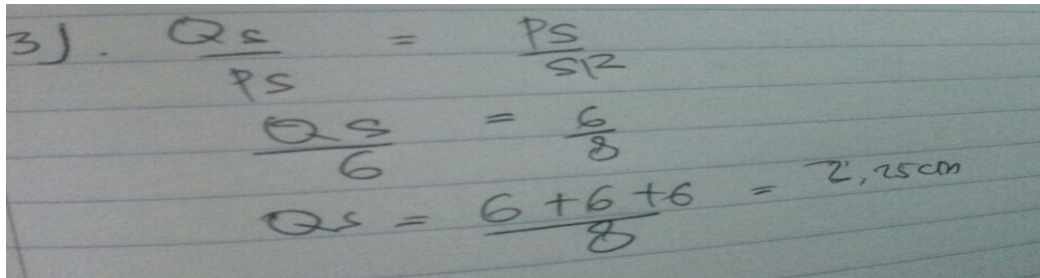 3). Qs/PS = PS/SR
QS/6 = 6/8
Qs = 6+6+6/8 = 2,25cm